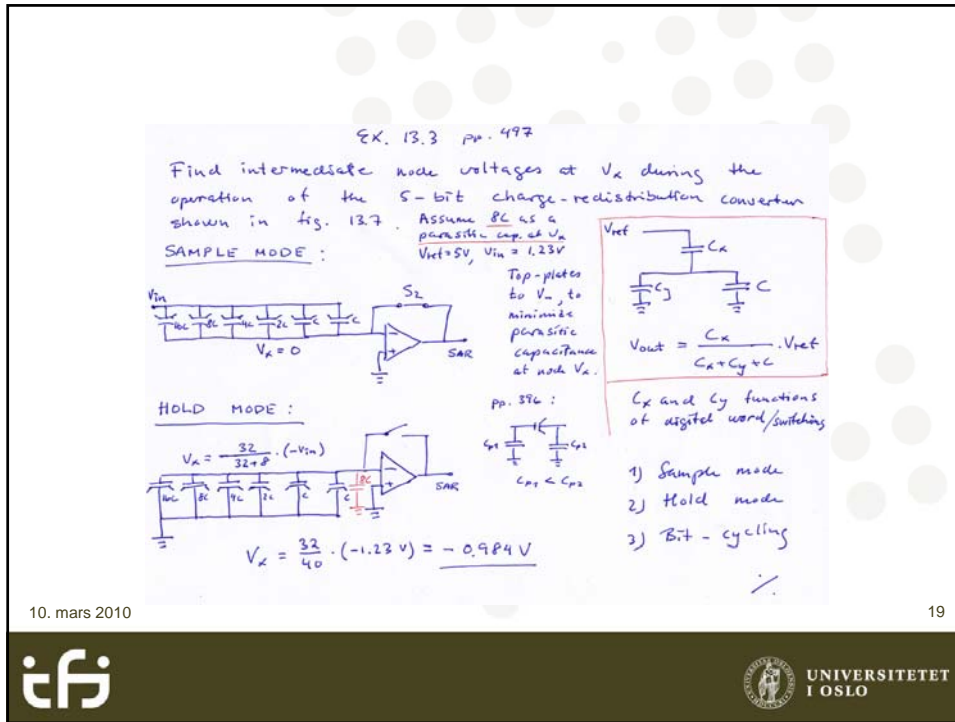 EX. 13.3 pp. 497
Find intermediate node voltages at Vx during the
operation of the 5-bit charge-redistribution converter
shown in fig. 13.7. Assume 8C as a
parasitic cap. at Vx
Vref=5V, Vin = 1.23V
SAMPLE MODE :
Vin
16C 8C 4C 2C C C
Vx = 0
S2
SAR
Top-plates
to Vx, to
minimize
parasitic
capacitance
at node Vx.
Vref
Cx
Cy
C
Vout = Cx / (Cx + Cy + C) · Vref
Cx and Cy functions
of digital word/switching
HOLD MODE :
Vx = 32 / (32+8) · (-Vin)
16C 8C 4C 2C C C 8C
SAR
pp. 396 :
Cp1 Cp2
Cp1 < Cp2
1) Sample mode
2) Hold mode
3) Bit - cycling
Vx = 32/40 · (-1.23 V) = - 0.984 V
10. mars 2010
19
ifi
UNIVERSITETET
I OSLO